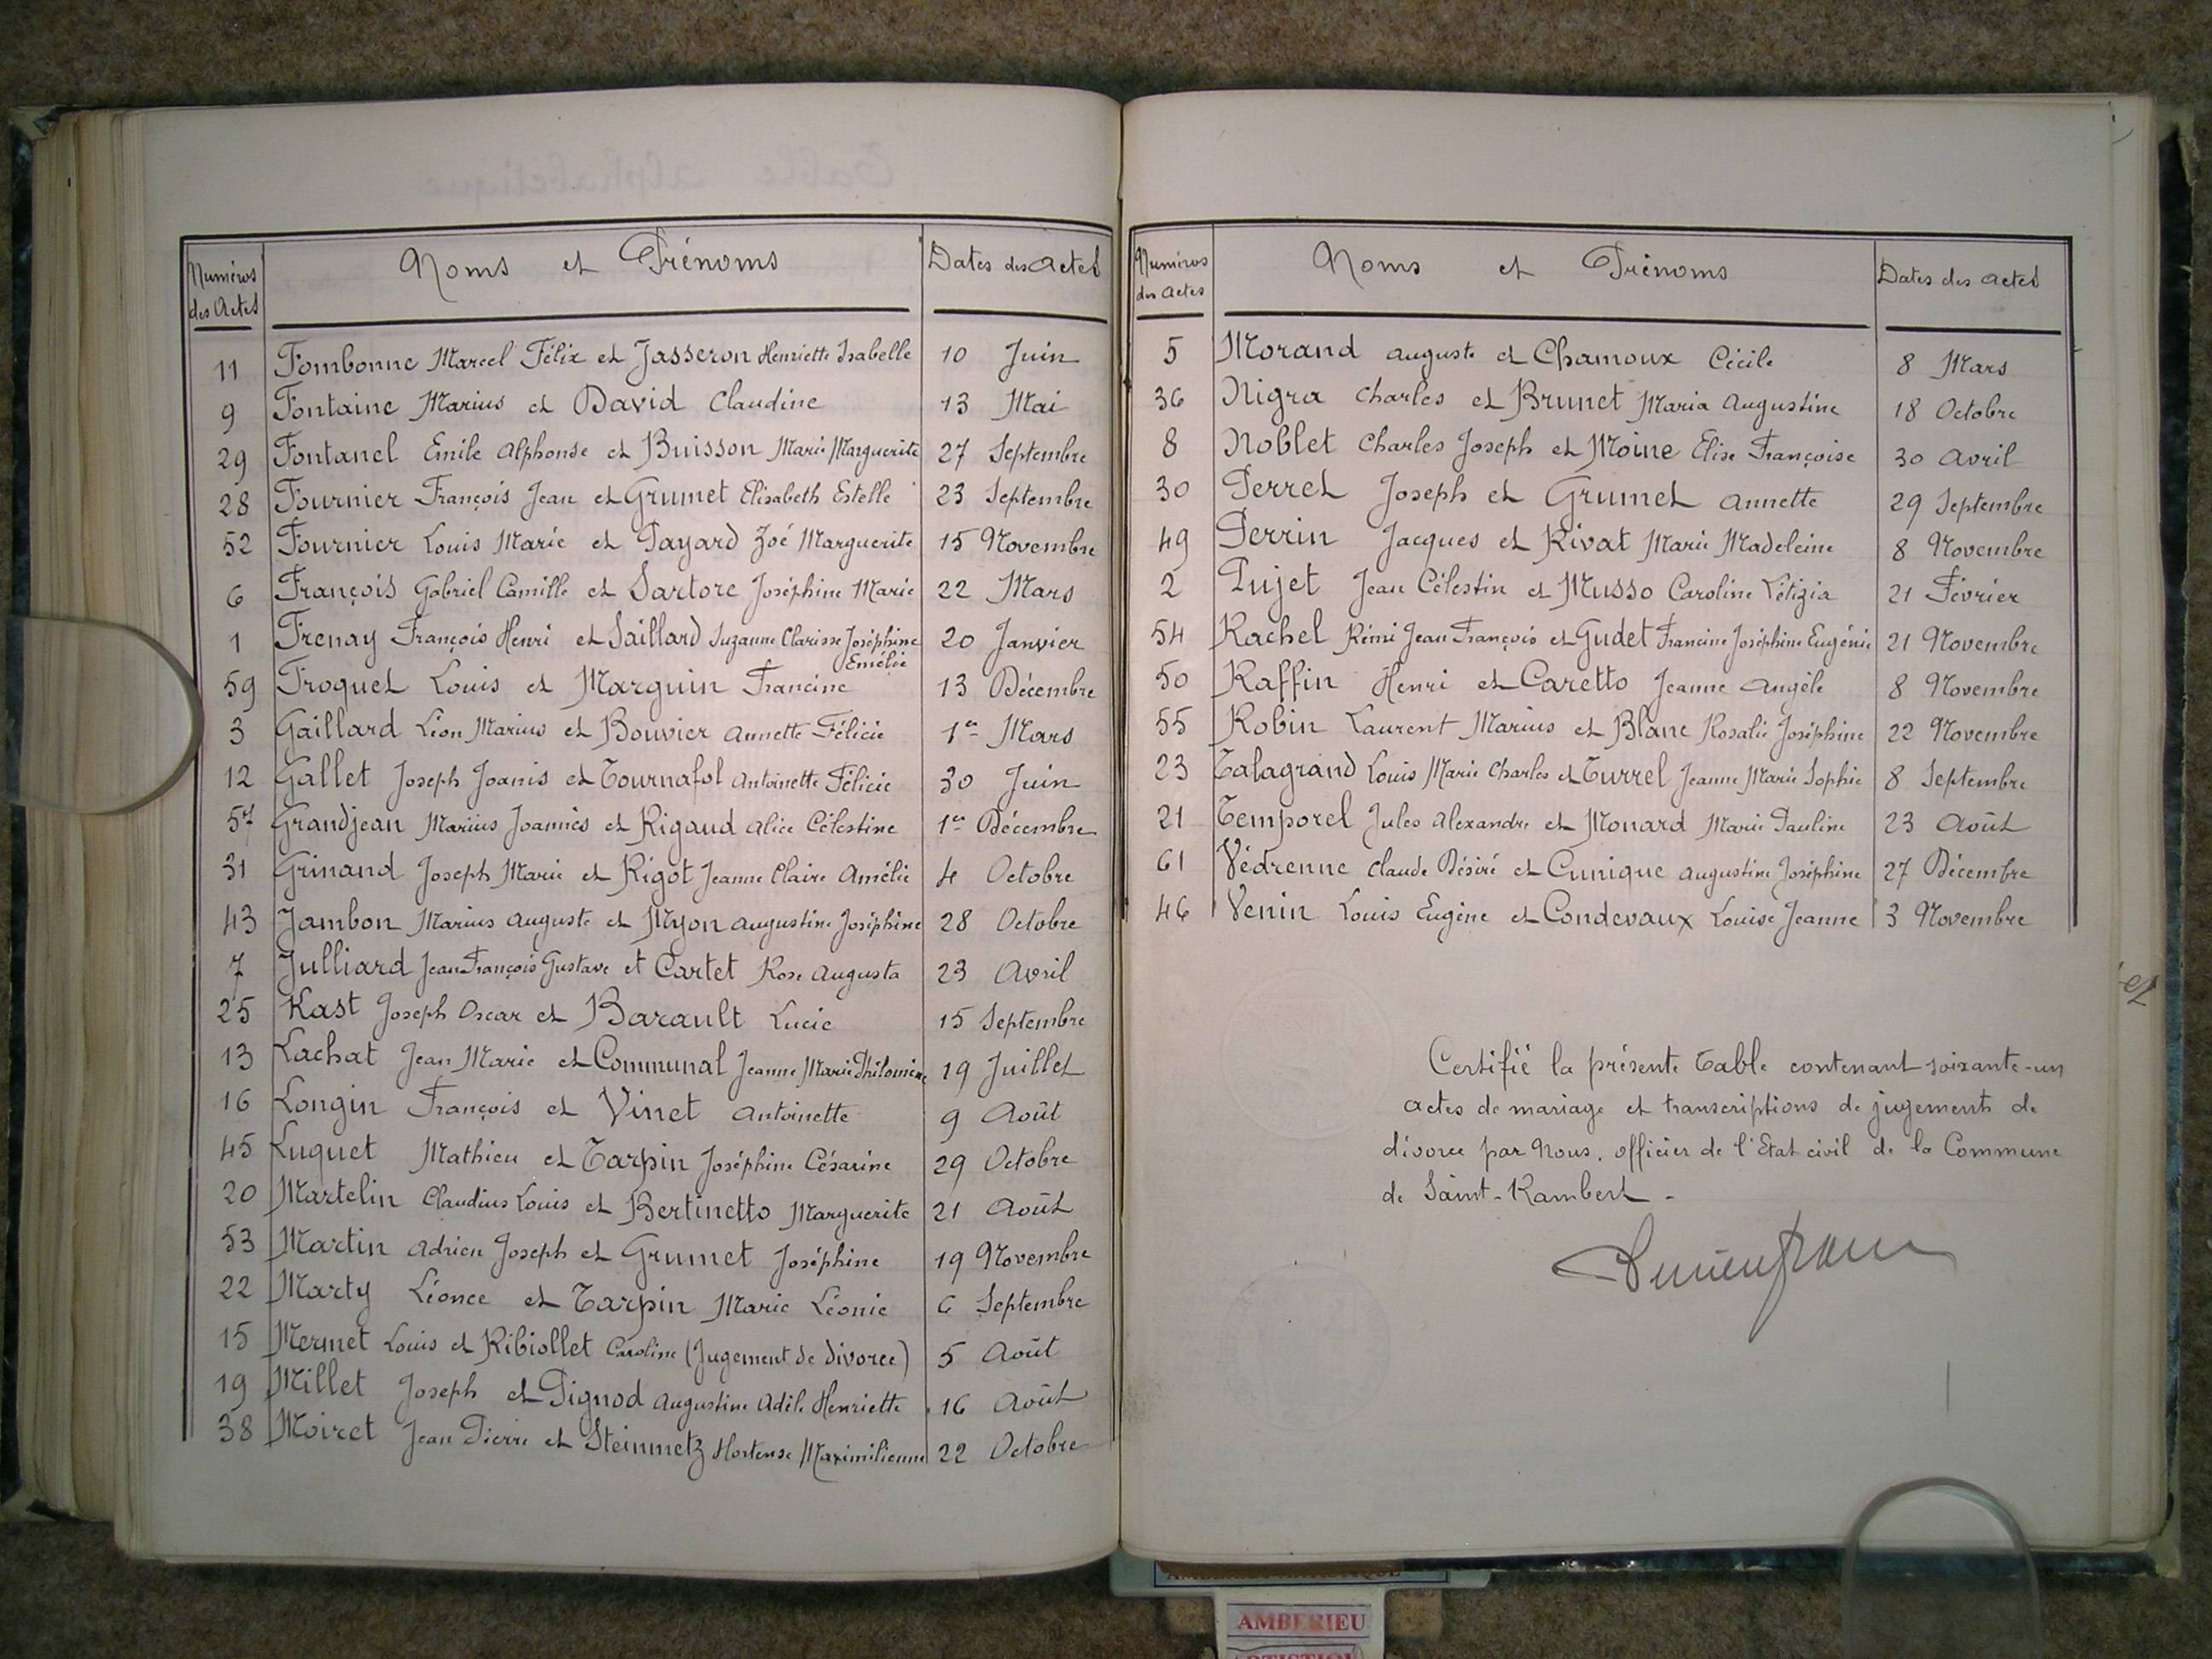 Numéros des Actes Noms et Prénoms Dates des Actes
11 Fombonne Marcel Félix et Jasseron Henriette Isabelle 10 Juin
9 Fontaine Marius et David Claudine 13 Mai
29 Fontanel Emile Alphonse et Buisson Marie Marguerite 27 Septembre
28 Fournier François Jean et Grumet Elisabeth Estelle 23 Septembre
52 Fournier Louis Marie et Payard Zoé Marguerite 15 Novembre
6 François Gabriel Camille et Sartore Joséphine Marie 22 Mars
1 Frenay François Henri et Saillard Suzanne Clarisse Joséphine 20 Janvier
Emélie
59 Froquet Louis et Marguin Francine 13 Décembre
3 Gaillard Léon Marius et Bouvier Annette Félicie 1er Mars
12 Gallet Joseph Joanis et Tournafol Antoinette Félicie 30 Juin
57 Grandjean Marius Joannès et Rigaud Alice Célestine 1er Décembre
31 Grinand Joseph Marie et Rigot Jeanne Claire Amélie 4 Octobre
43 Jambon Marius Auguste et Myon Augustine Joséphine 28 Octobre
7 Julliard Jean François Gustave et Cartet Rose Augusta 23 Avril
25 Kast Joseph Oscar et Barault Lucie 15 Septembre
13 Lachat Jean Marie et Communal Jeanne Marie Philomène 19 Juillet
16 Longin François et Vinet Antoinette 9 Août
45 Luquet Mathieu et Tarpin Joséphine Césarine 29 Octobre
20 Martelin Claudius Louis et Bertinetto Marguerite 21 Août
53 Martin Adrien Joseph et Grumet Joséphine 19 Novembre
22 Marty Léonce et Tarpin Marie Léonie 6 Septembre
15 Mermet Louis et Ribiollet Caroline (Jugement de divorce) 5 Août
19 Millet Joseph et Pignod Augustine Adèle Henriette 16 Août
38 Moiret Jean Pierre et Steinmetz Hortense Maximilienne 22 Octobre
Numéros des Actes Noms et Prénoms Dates des Actes
5 Morand Auguste et Chamoux Cécile 8 Mars
36 Nigra Charles et Brunet Maria Augustine 18 Octobre
8 Noblet Charles Joseph et Moine Elise Françoise 30 Avril
30 Perret Joseph et Grumet Annette 29 Septembre
49 Perrin Jacques et Rivat Marie Madeleine 8 Novembre
2 Pujet Jean Célestin et Musso Caroline Létizia 21 Février
54 Rachel Rémi Jean François et Gudet Francine Joséphine Eugénie 21 Novembre
50 Raffin Henri et Caretto Jeanne Angèle 8 Novembre
55 Robin Laurent Marius et Blanc Rosalie Joséphine 22 Novembre
23 Talagrand Louis Marie Charles et Turrel Jeanne Marie Sophie 8 Septembre
21 Temporel Jules Alexandre et Monard Marie Pauline 23 Août
61 Védrenne Claude Désiré et Cunique Augustine Joséphine 27 Décembre
46 Venin Louis Eugène et Condevaux Louise Jeanne 3 Novembre
Certifié la présente Table contenant soixante-un
actes de mariage et transcriptions de jugements de
divorce par Nous, officier de l'Etat civil de la Commune
de Saint-Rambert -
et
AMBERIEU